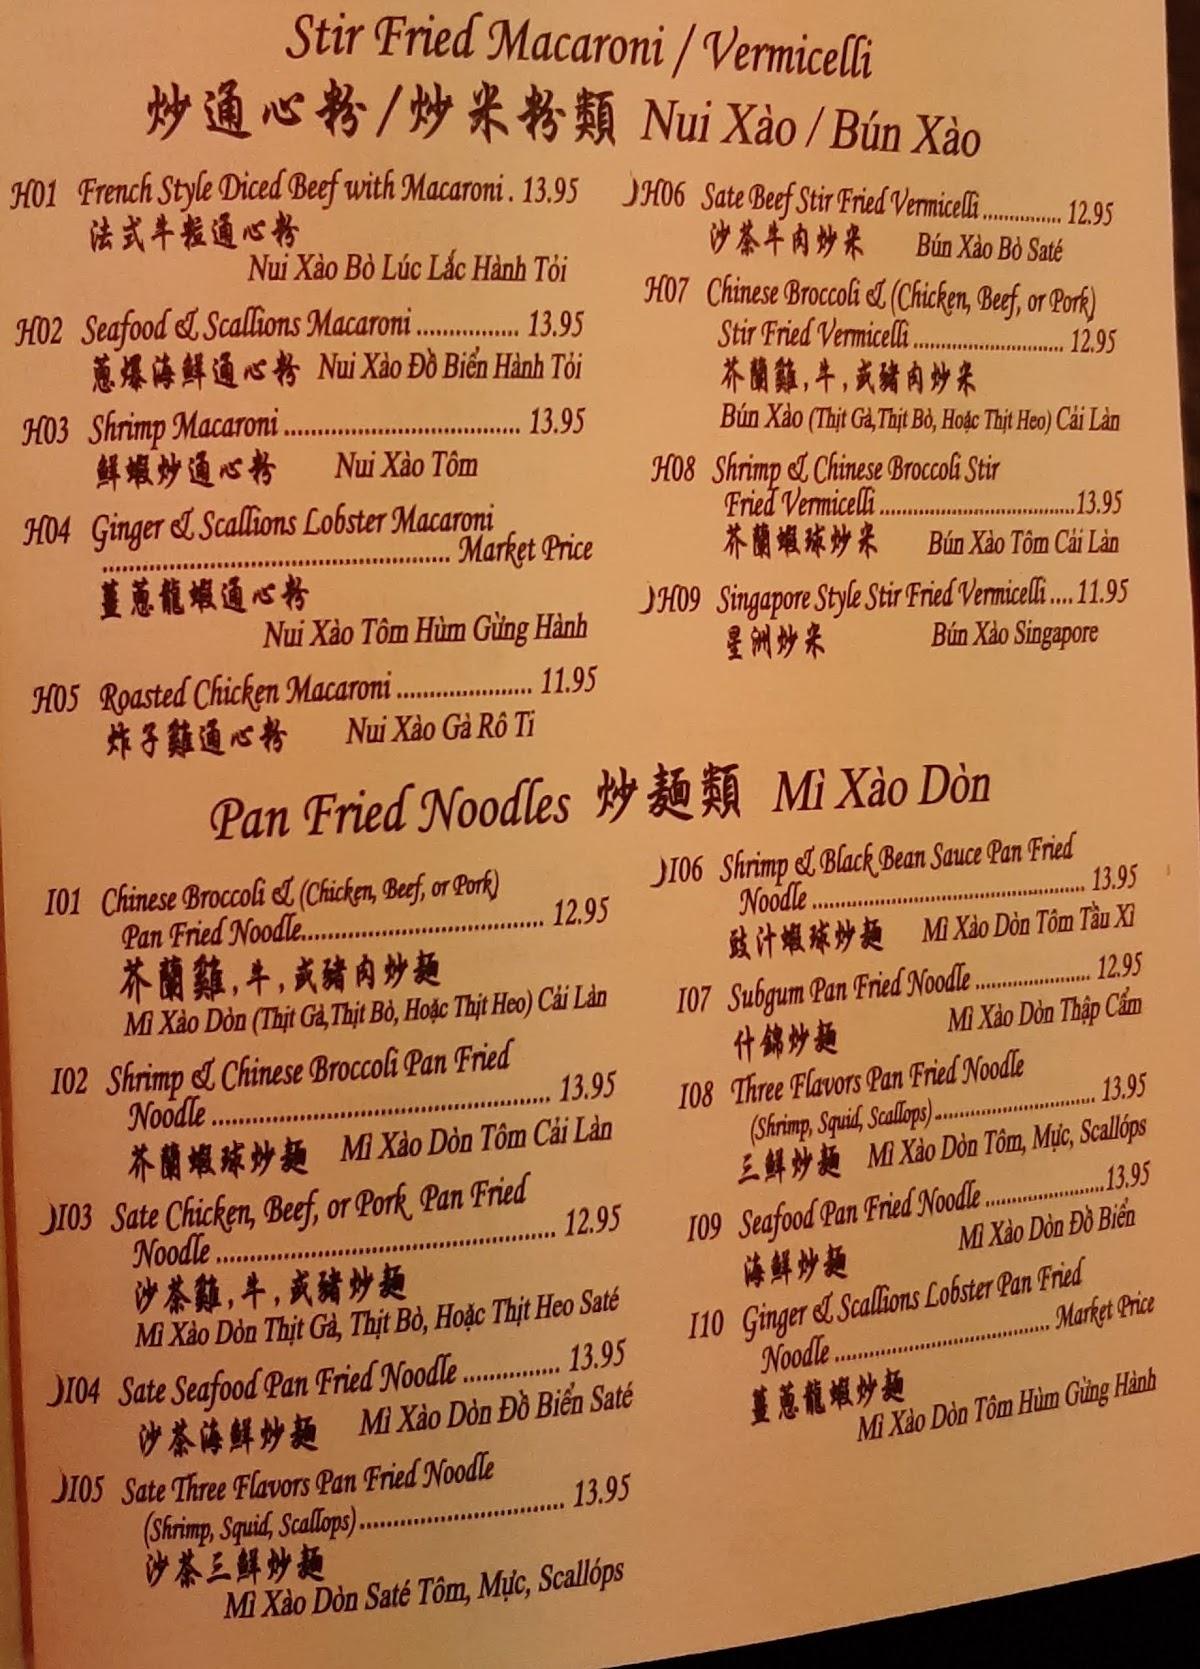 Stir Fried Macaroni / Vermicelli
炒通心粉/炒米粉類 Nui Xào / Bún Xào
H01 French Style Diced Beef with Macaroni . 13.95
法式牛粒通心粉
Nui Xào Bò Lúc Lắc Hành Tỏi
H02 Seafood & Scallions Macaroni ................ 13.95
蔥爆海鮮通心粉 Nui Xào Đồ Biển Hành Tỏi
H03 Shrimp Macaroni .................................... 13.95
鮮蝦炒通心粉 Nui Xào Tôm
H04 Ginger & Scallions Lobster Macaroni
..................................................... Market Price
薑蔥龍蝦通心粉
Nui Xào Tôm Hùm Gừng Hành
H05 Roasted Chicken Macaroni ..................... 11.95
炸子雞通心粉 Nui Xào Gà Rô Ti
H06 Sate Beef Stir Fried Vermicelli ............... 12.95
沙茶牛肉炒米 Bún Xào Bò Saté
H07 Chinese Broccoli & (Chicken, Beef, or Pork)
Stir Fried Vermicelli ............................ 12.95
芥蘭雞,牛,或豬肉炒米
Bún Xào (Thịt Gà,Thịt Bò, Hoặc Thịt Heo) Cải Làn
H08 Shrimp & Chinese Broccoli Stir
Fried Vermicelli ....................................13.95
芥蘭蝦球炒米 Bún Xào Tôm Cải Làn
H09 Singapore Style Stir Fried Vermicelli .... 11.95
星洲炒米 Bún Xào Singapore
Pan Fried Noodles 炒麵類 Mì Xào Dòn
I01 Chinese Broccoli & (Chicken, Beef, or Pork)
Pan Fried Noodle..................................... 12.95
芥蘭雞,牛,或豬肉炒麵
Mì Xào Dòn (Thịt Gà,Thịt Bò, Hoặc Thịt Heo) Cải Làn
I02 Shrimp & Chinese Broccoli Pan Fried
Noodle .................................................... 13.95
芥蘭蝦球炒麵 Mì Xào Dòn Tôm Cải Làn
I03 Sate Chicken, Beef, or Pork Pan Fried
Noodle .................................................... 12.95
沙茶雞,牛,或豬炒麵
Mì Xào Dòn Thịt Gà, Thịt Bò, Hoặc Thịt Heo Saté
I04 Sate Seafood Pan Fried Noodle ............... 13.95
沙茶海鮮炒麵 Mì Xào Dòn Đồ Biển Saté
I05 Sate Three Flavors Pan Fried Noodle
(Shrimp, Squid, Scallops) ................................ 13.95
沙茶三鮮炒麵
Mì Xào Dòn Saté Tôm, Mực, Scallóps
I06 Shrimp & Black Bean Sauce Pan Fried
Noodle .......................................... 13.95
豉汁蝦球炒麵 Mì Xào Dòn Tôm Tầu Xì
I07 Subgum Pan Fried Noodle .................. 12.95
什錦炒麵 Mì Xào Dòn Thập Cẩm
I08 Three Flavors Pan Fried Noodle
(Shrimp, Squid, Scallops) ......................... 13.95
三鮮炒麵 Mì Xào Dòn Tôm, Mực, Scallóps
I09 Seafood Pan Fried Noodle ...................13.95
海鮮炒麵 Mì Xào Dòn Đồ Biển
I10 Ginger & Scallions Lobster Pan Fried
Noodle .................................. Market Price
薑蔥龍蝦炒麵
Mì Xào Dòn Tôm Hùm Gừng Hành